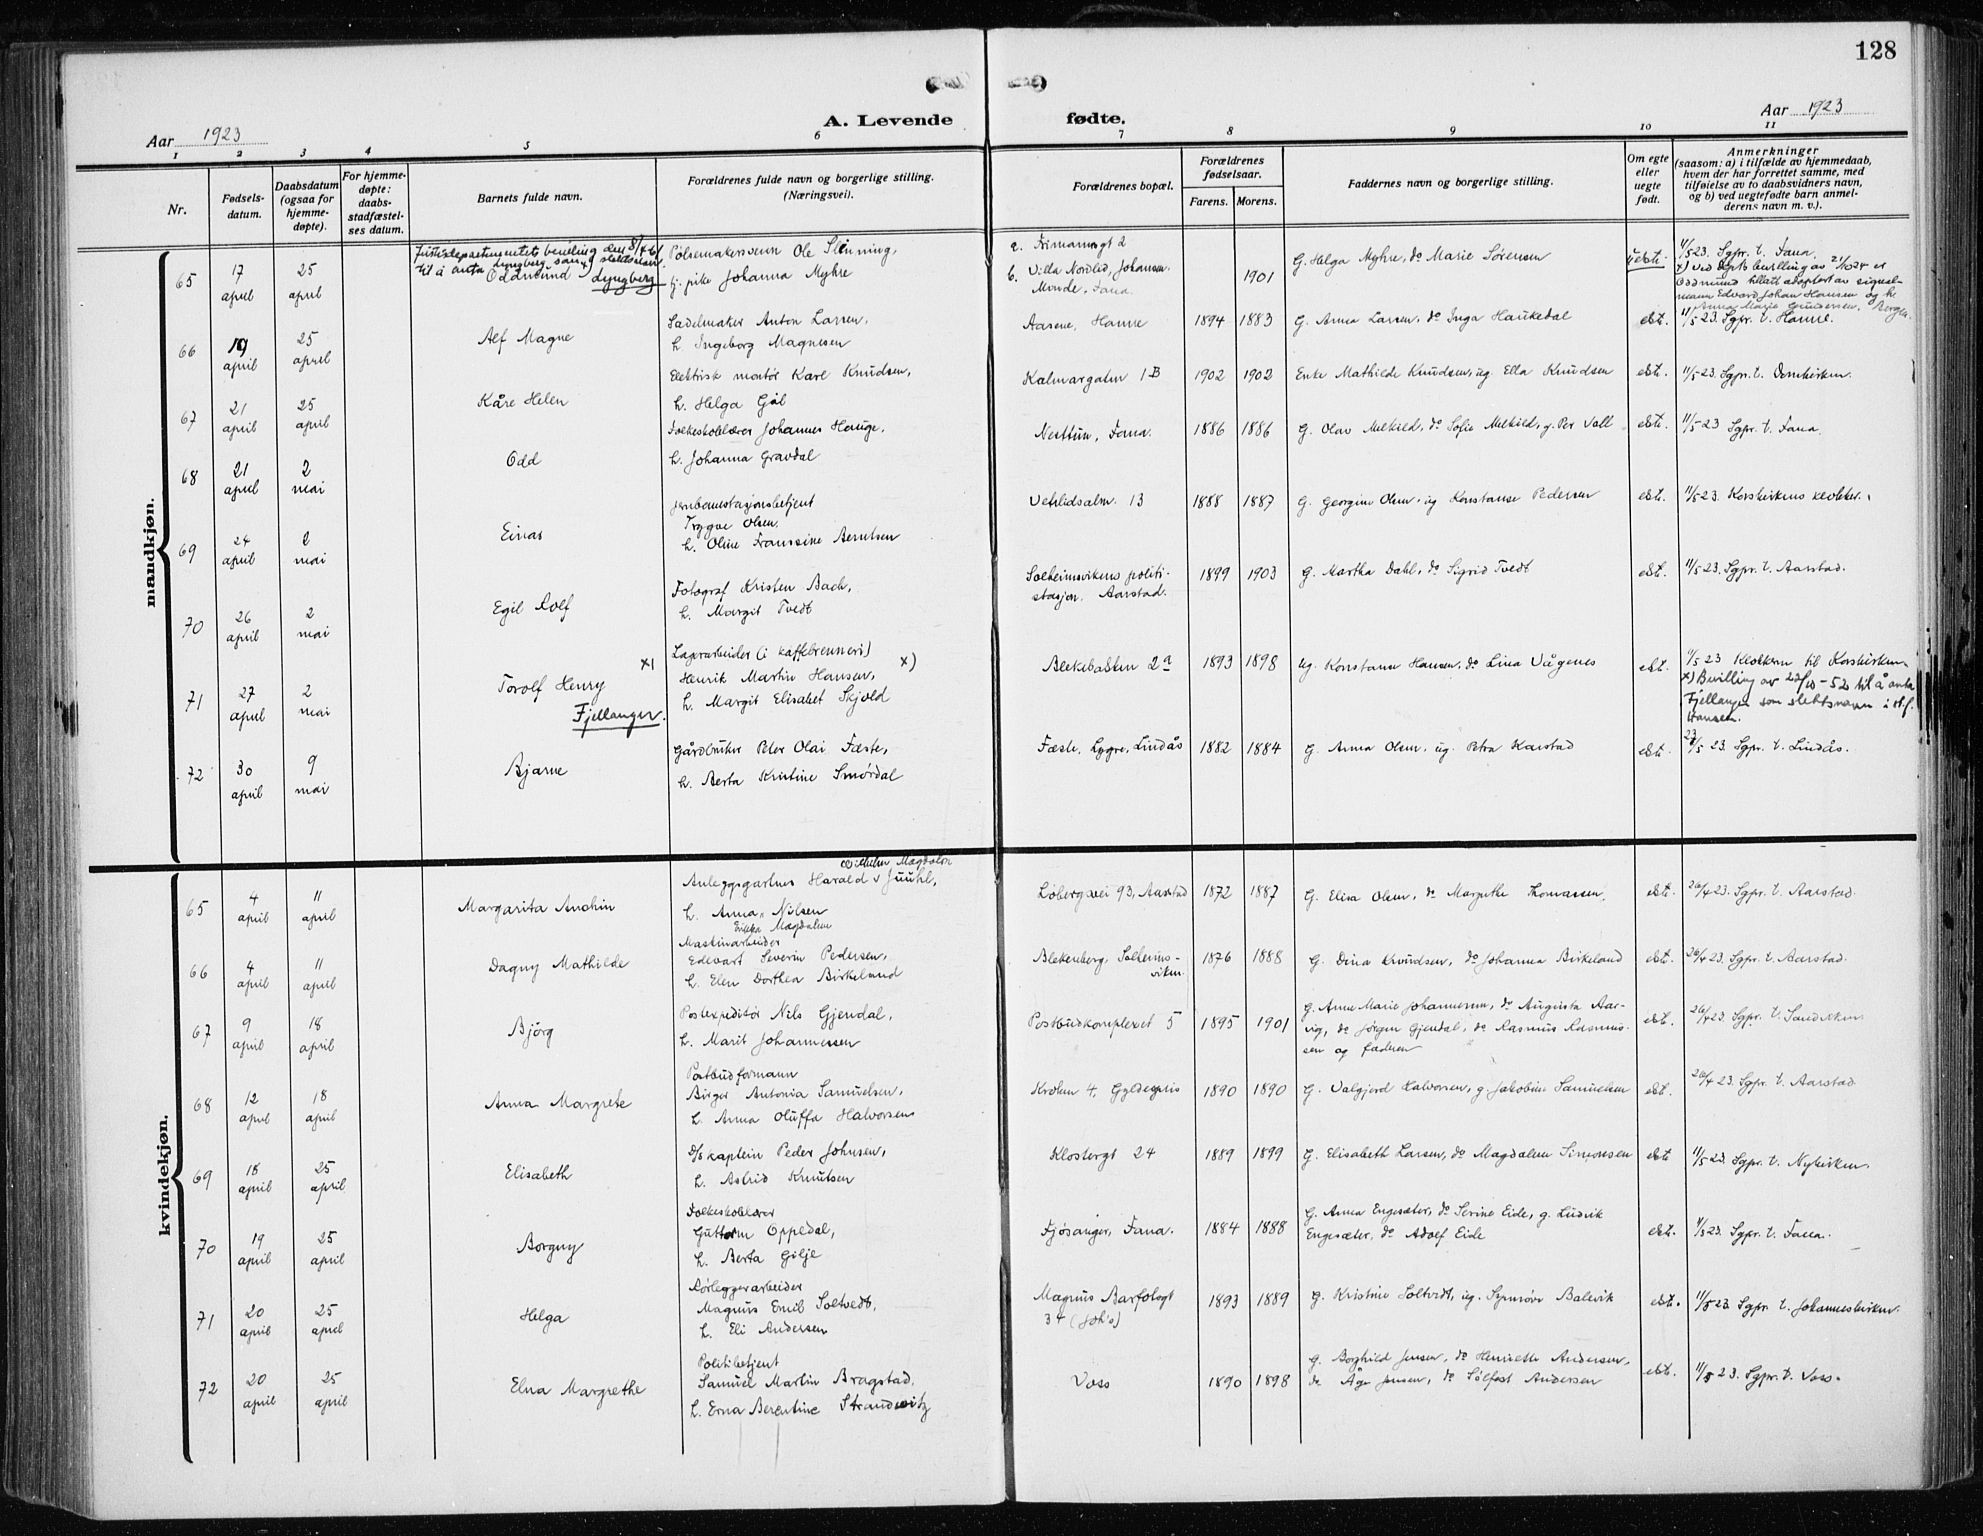 128
Aar 1923
A. Levende fødte.
Aar 1923
1 2 3 4 5 6 7 8 9 10 11
Nr.
Fødsels-
datum.
Daabsdatum
(ogsaa for
hjemme-
døpte).
For hjemme-
døpte:
daabs-
stadfæstel-
ses datum.
Barnets fulde navn.
Forældrenes fulde navn og borgerlige stilling.
(Næringsvei).
Forældrenes bopæl.
Forældrenes
fødselsaar.
Farens. Morens.
Faddernes navn og borgerlige stilling.
Om egte
eller
uegte
født.
Anmerkninger
(saasom: a) i tilfælde av hjemmedaab,
hvem der har forrettet samme, med
tilføielse av to daabsvidners navn,
og b) ved uegtefødte barn anmel-
derens navn m. v.).
mandkjøn.
65
17
april
25
april
Justisdepartementets bevilling den 8/4 46
til å anta Lyngberg som slektsnavn
Oddmund Lyngberg
Pølsemakersvenn Ole
pike Johanna Myhre
b. Villa Nordlid, Johansen.
Minde, Fana.
1901
G. Helga Myhre, do Marie Sørensen
uekte.
11/5 23. Sgpr. t. Fana.
x) Ved Depts bevilling av 21/10 24 er
Oddmund tillatt adoptert av signal-
mann Edvard Johan Hansen og h.
Anna Marie Gundersen, Bergen.
66
19
april
25
april
Alf Magne
Sadelmaker Anton Larsen,
h. Ingeborg Magnesen
Aasene, Hamre
1894 1883
G. Anna Larsen, do Inga Haukedal
ekte.
11/5 23. Sgpr. t. Hamre.
67
21
april
25
april
Kåre Helen
Elektrisk montør Karl Knudsen,
h. Helga Gål
Kalmargaten 1B
1902 1902
Enke Mathilde Knudsen, ug. Ella Knudsen
ekte.
11/5 23. Sgpr. t. Domkirken.
68
21
april
2
mai
Odd
Folkeskolelærer Johannes Hauge,
h. Johanna Gravdal
Nesttun, Fana.
1886 1886
G. Olav Melkild, do Sofie Melkild, g. Per Vall
ekte.
11/5 23 Sgpr. t. Fana.
69
24
april
2
mai
Einar
Jernbanestasjonsbetjent
Trygve Olsen,
h. Oline Franssine Berntsen
Vetrlidsalm. 13
1888 1887
G. Georgine Olsen, ug Konstanse Pedersen
ekte.
11/5 23. Korskirkens klokker.
70
26
april
2
mai
Egil Rolf
Fotograf Kristen Bach,
h. Margit Tvedt
Solheimsvikens politi-
stasjon. Aarstad.
1899 1903
G. Martha Dahl, do Sigrid Tvedt
ekte.
11/5 23. Sgpr. t. Aarstad.
71
27
april
2
mai
x)
Torolf Henry
Fjellanger.
Lagerarbeider (i kaffebrenneri)
Henrik Martin Hansen, x)
h. Margit Elisabet Skjold
Blekebakken 2a
1893 1898
ug. Konstanse Hansen, do Lina Vågenes
ekte.
11/5 23 Klokkern til Korskirken
x) Bevilling av 22/10 - 52 til å anta
Fjellanger som slektsnavn i st. f.
Hansen.
72
30
april
9
mai
Bjarne
Gårdbruker Peter Olai Fæste,
h. Berta Kristine Smørdal
Fæste, Lygre, Lindås
1882 1884
G. Anna Olsen, ug. Petra Karstad
ekte.
23/5 23. Sgpr. t. Lindås.
kvindekjøn.
65
4
april
11
april
Margarita Anchin
Wilhelm Magdalon
Anleggsgartner Harald v Juuhl,
h. Anna Nilsen
Erikka Magdalene
Løbergsvei 93, Aarstad
1872 1887
G. Elisa Olsen, do Margrethe Thomassen.
ekte.
26/4 23. Sgpr. t. Aarstad.
66
4
april
11
april
Dagny Mathilde
Maskinarbeider
Edevart Severin Pedersen,
h. Elen Dorthea Birkeland
Blekenberg, Solheims-
viken.
1876 1888
G. Dina Knudsen, do Johanna Birkeland
ekte.
26/4 23. Sgpr. t. Aarstad.
67
9
april
18
april
Bjørg
Postexpeditør Nils Gjendal,
h. Marit Johannessen
Postbudkomplexet 5
1895 1901
G. Anne Marie Johannesen, do Augusta Aar-
vig, do Jørgen Gjendal, do Rasmus Rasmus-
sen og faderen
ekte.
26/4 23 Sgpr. t. Sandviken
68
12
april
18
april
Anna Margrete
Postbudformann
Birger Antonia Samuelsen,
h. Anna Oluffa Halvorsen
Kroken 4, Gyldenpris
1890 1890
G. Valgjerd Halvorsen, g. Jakobine Samuelsen
ekt.
26/4 23. Sgpr. t. Aarstad
69
18
april
25
april
Elisabeth
D/s kaptein Peder Johnsen,
h. Astrid Knutsen
Klostergt 24
1889 1899
G. Elisabeth Larsen, do Magdalene Simonsen
ekte
11/5 23. Sgpr. t. Nykirken.
70
19
april
25
april
Borgny
Folkeskolelærer
Guttorm Oppedal,
h. Berta Gilje
Fjøsanger, Fana.
1884 1888
G. Anna Engesæter, do Serine Eide, g. Ludvik
Engesæter, do Adolf Eide
ekte.
11/5 23. Sgpr. t. Fana.
71
20
april
25
april
Helga
Rørleggerarbeider
Magnus Emil Soltvedt,
h. Eli Andersen
Magnus Barfotsgt
34 (Joh's)
1893 1889
G. Kristine Soltvedt, ug. Synnøve Balevik
ekte.
11/5 23. Sgpr. t. Johanneskirken.
72
20
april
25
april
Elna Margrethe
Politibetjent
Samuel Martin Bragstad,
h. Erna Berentine Strandwitz
Voss
1890 1898
G. Borghild Jensen, do Henriette Andersen,
do Åge Jensen, do Sølfest Andersen
ekte.
11/5 23. Sgpr. t. Voss.